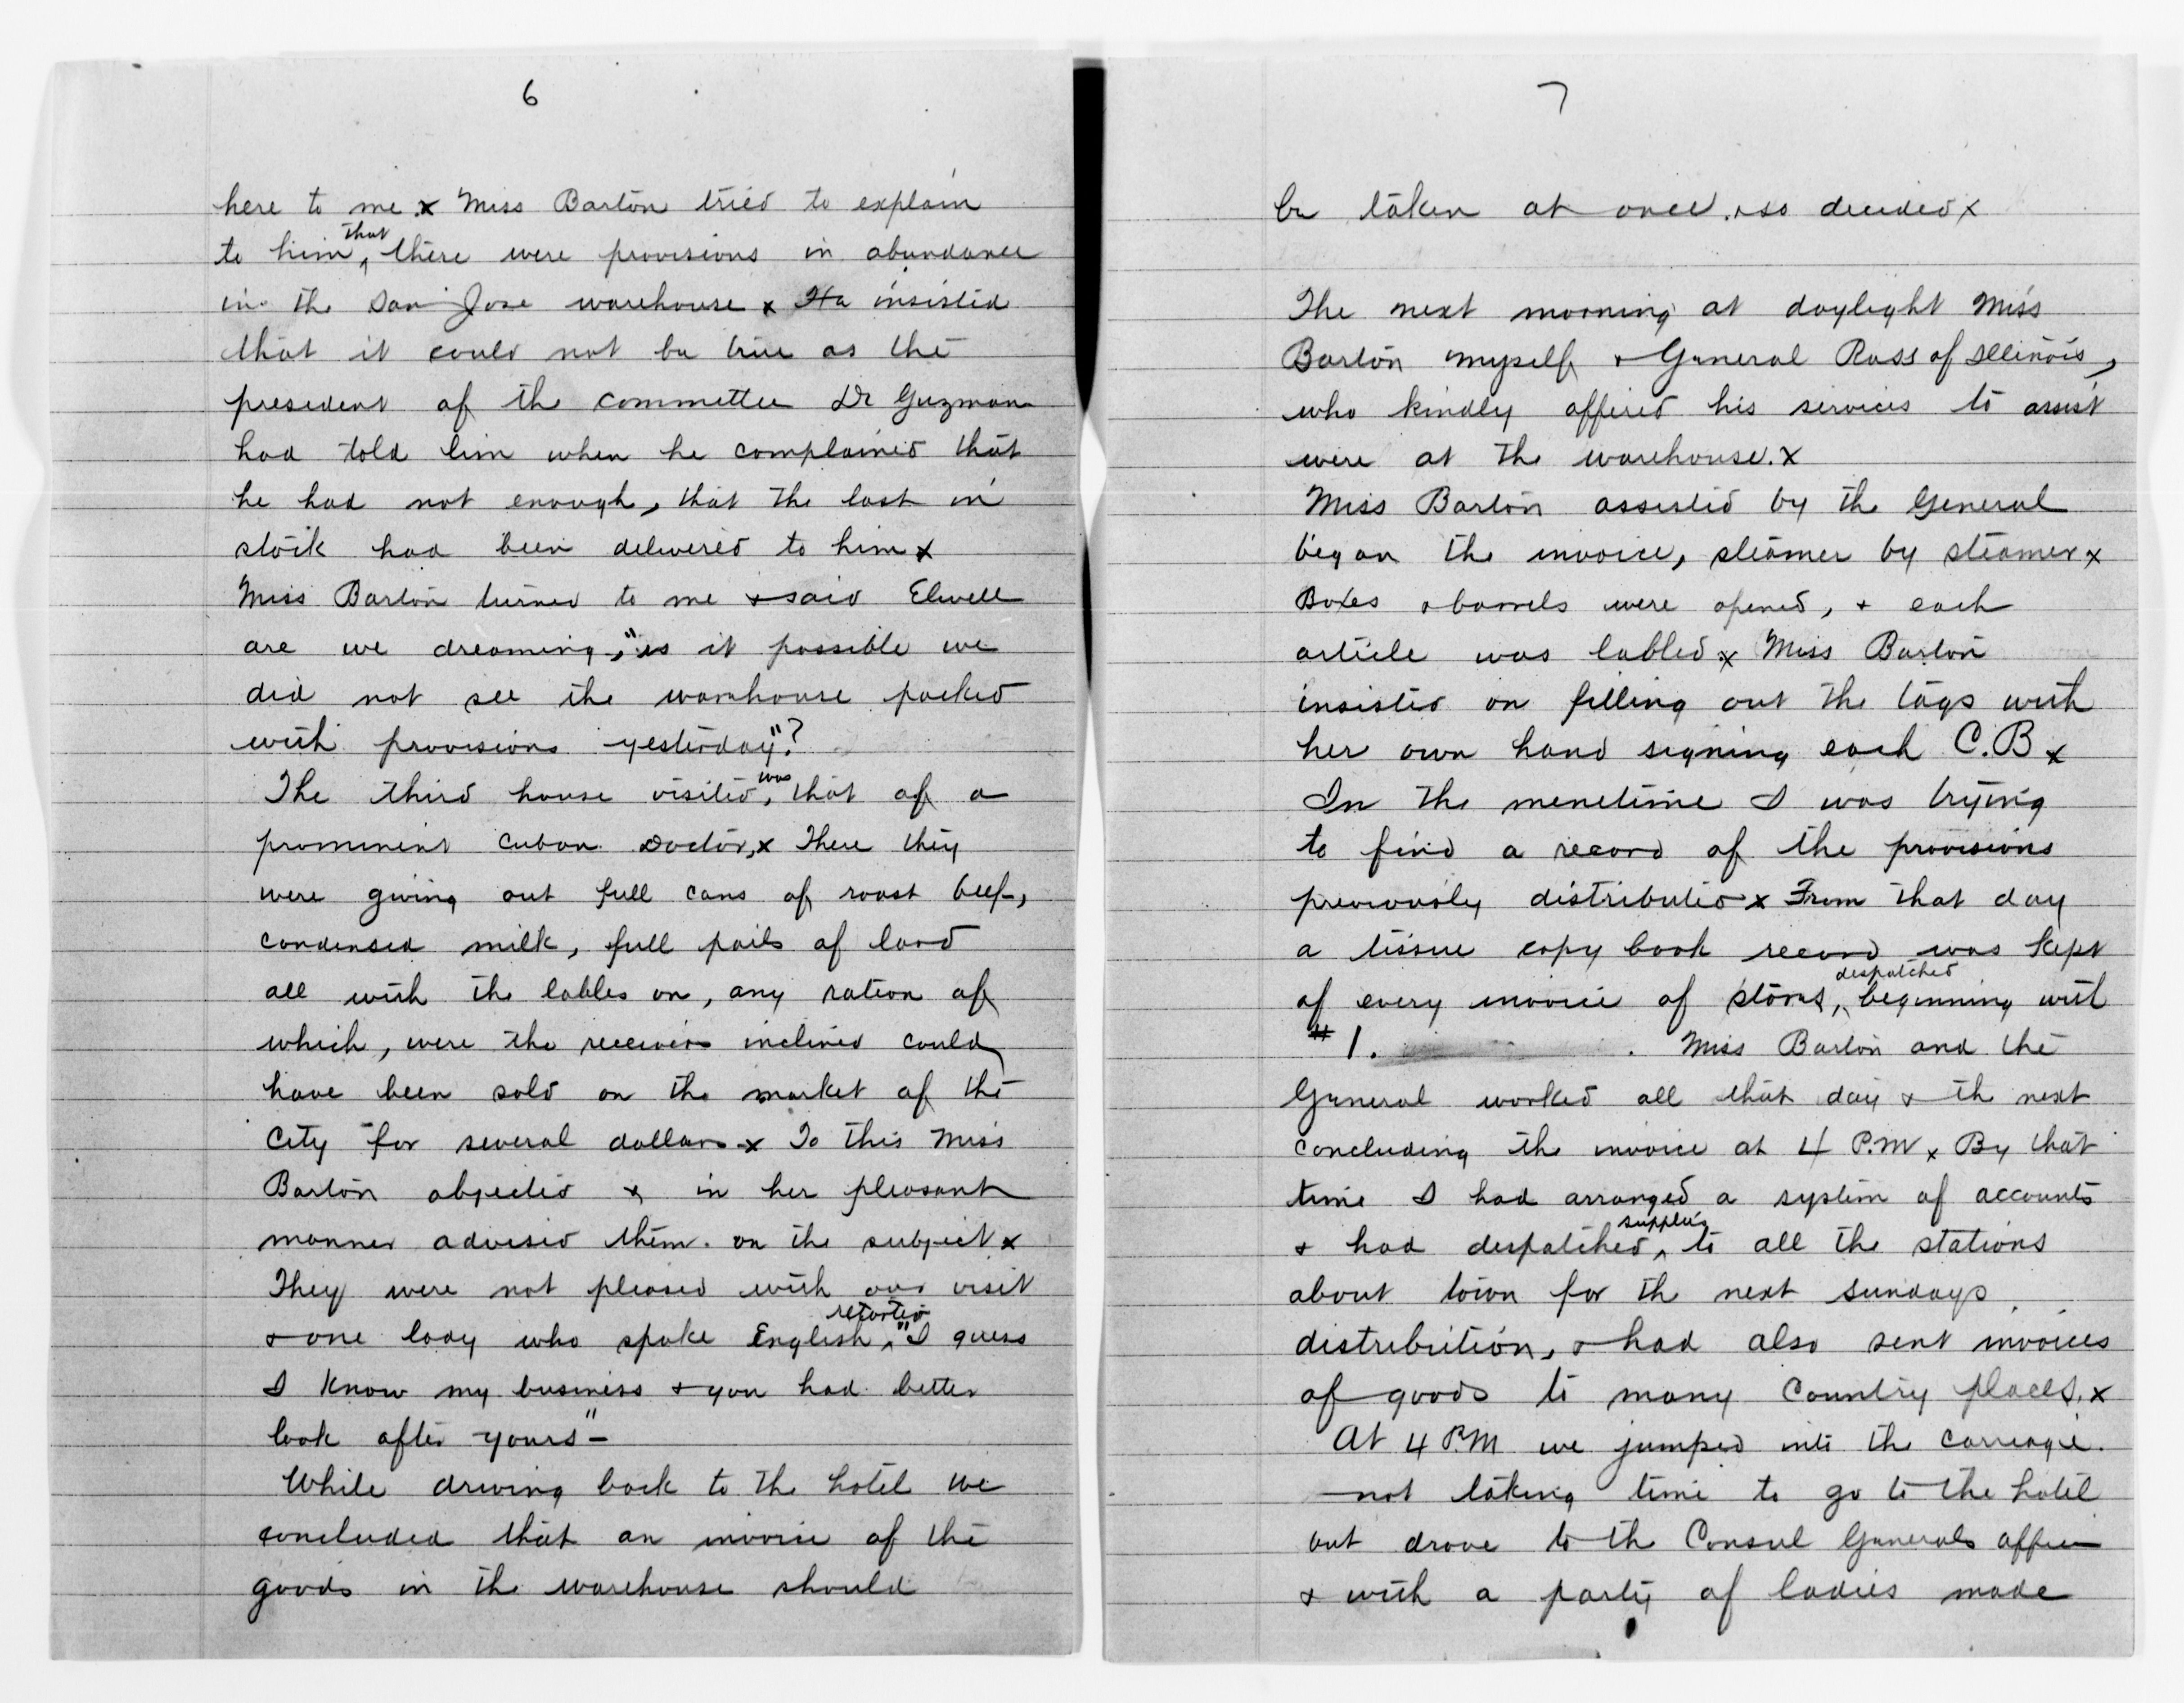 6
here to me. x Miss Barton tried to explain
to him, that there were provisions in abundance
in the San Jose warehouse x He insisted
that it could not be true as the
president of the committee Dr Guzman
had told him when he complained that
he had not enough, that the last in
stock had been delivered to him x
Miss Barton turned to me & said Elwell
are we dreaming, "is it possible we
did not see the warehouse packed
with provisions yesterday"?
The third house visited, was that of a
prominent Cuban Doctor, x There they
were giving out full cans of roast beef,
condensed milk, full pails of lard
all with the lables on, any ration of
which, were the receivers inclined could
have been sold on the market of the
City for several dollars x To this Miss
Barton objected & in her pleasant
manner advised them on the subject x
They were not pleased with our visit
& one lady who spoke English, retorted "I guess
I know my business & you had better
look after yours" -
While driving back to the hotel we
concluded that an invoice of the
goods in the warehouse should
7
be taken at once. & so decided x
The next morning at daylight Miss
Barton myself & General Rass of Illinois,
who kindly offered his services to assist
were at the warehouse. x
Miss Barton assisted by the General
began the invoice, steamer by steamer x
Boxes & barrels were opened, & each
article was labled x Miss Barton
insisted on filling out the tags with
her own hand signing each C.B x
In the menetime I was trying
to find a record of the provisions
previously distributed x From that day
a tissue copy book record was kept
of every invoice of stores, despatched beginning with
#1. Miss Barton and the
General worked all that day & the next
concluding the invoice at 4 P.M x By that
time I had arranged a system of accounts
& had despatched supplies to all the stations
about town for the next Sundays
distribution, & had also sent invoices
of goods to many Country places. x
At 4 P.M we jumped into the carriage.
not taking time to go to the hotel
but drove to the Consul Generals office
& with a party of ladies made